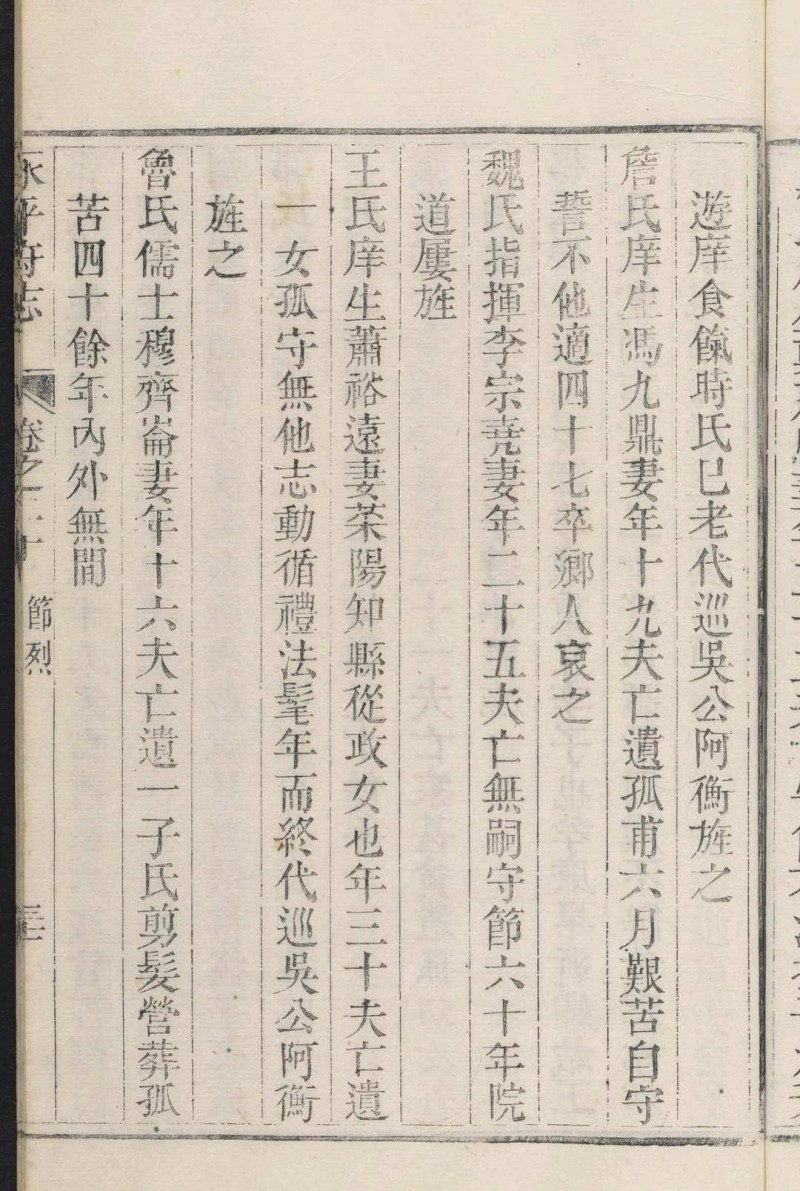 遊庠食餼時氏已老代巡吳公阿衡旌之
詹氏庠生馮九鼎妻年十九夫亡遺孤甫六月艱苦自守
誓不他適四十七卒鄉人哀之
魏氏指揮李宗堯妻年二十五夫亡無嗣守節六十年院
道屢旌
王氏庠生蕭裕遠妻荥陽知縣從政女也年三十夫亡遺
一女孤守無他志動循禮法髦年而終代巡吳公阿衡
旌之
魯氏儒士穆齊崙妻年十六夫亡遺一子氏剪髮營葬孤
苦四十餘年內外無間
永平府志 卷之二十 節烈